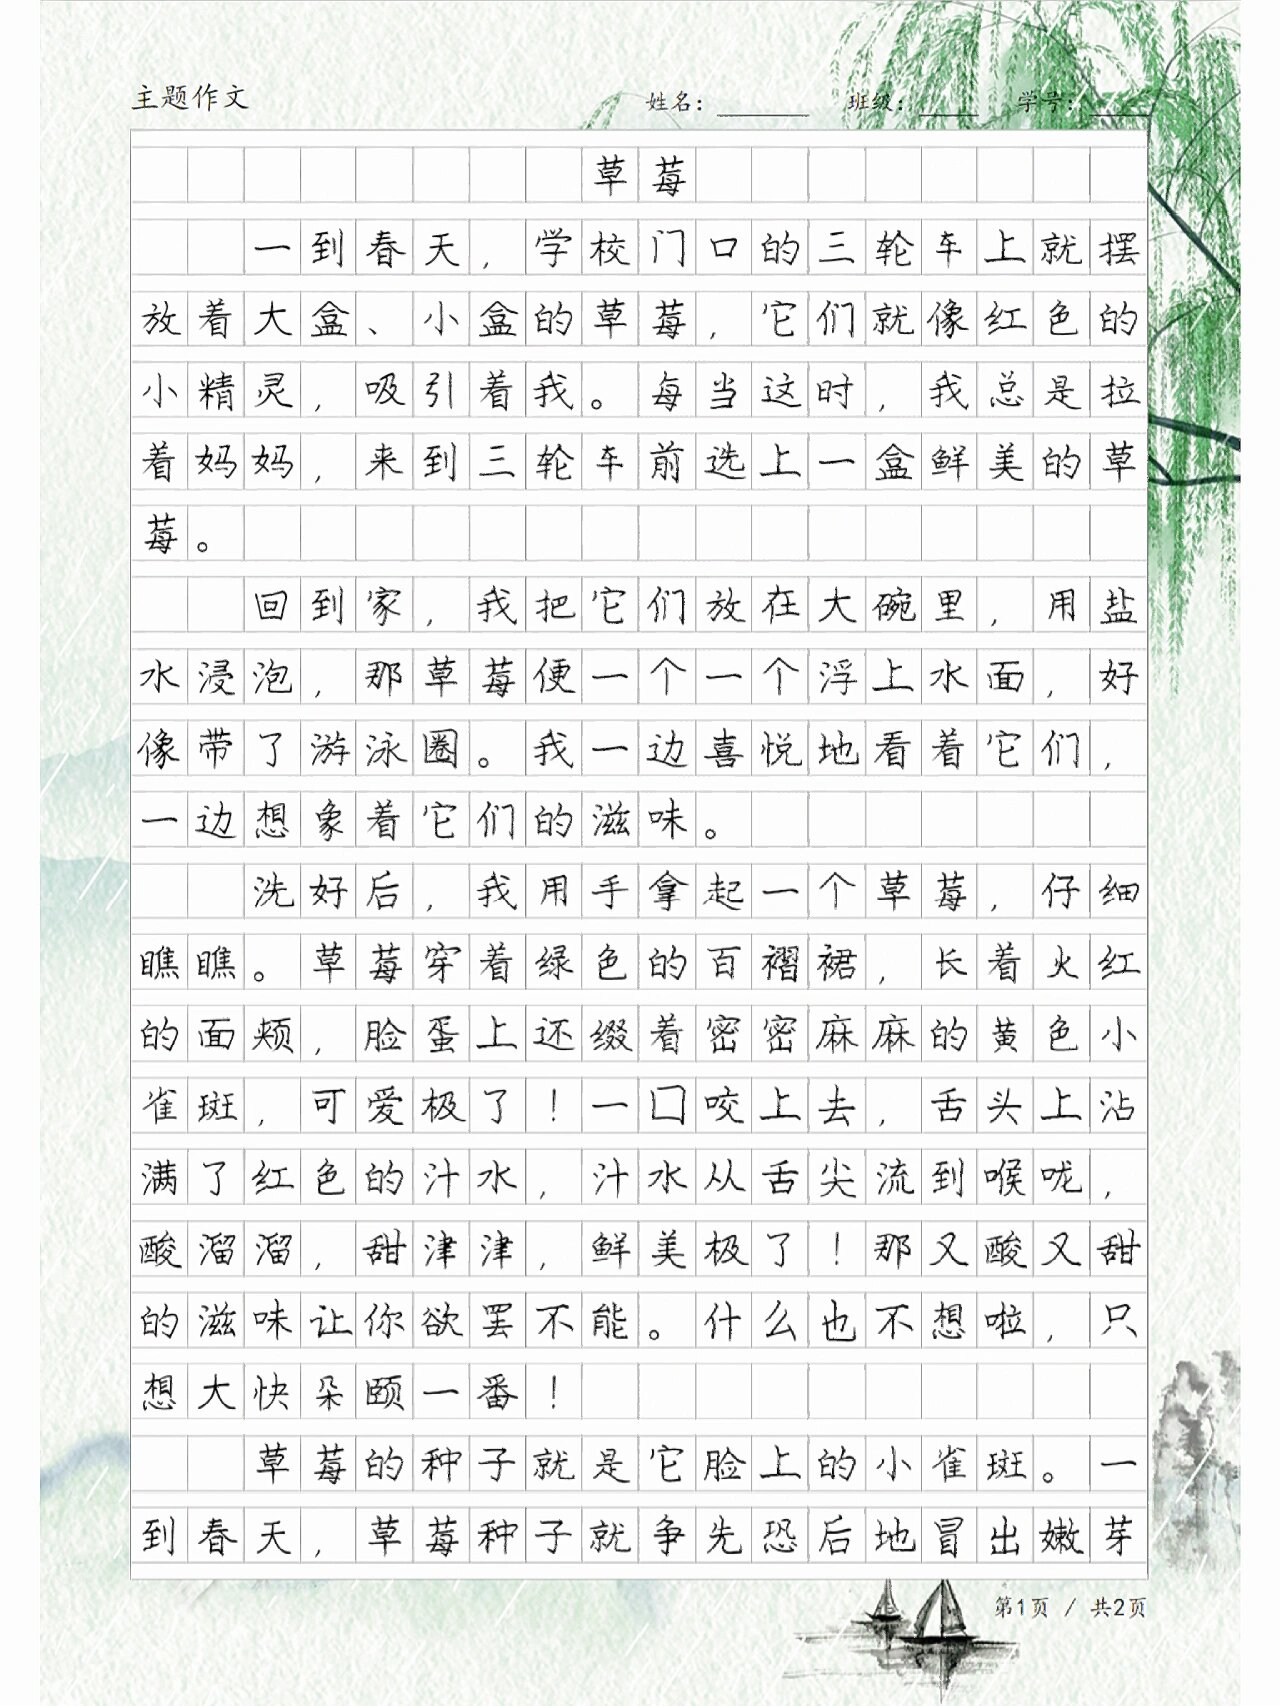 主题作文
姓名：________ 班级：_____ 学号：_____
草莓
一到春天，学校门口的三轮车上就摆
放着大盒、小盒的草莓，它们就像红色的
小精灵，吸引着我。每当这时，我总是拉
着妈妈，来到三轮车前选上一盒鲜美的草
莓。
回到家，我把它们放在大碗里，用盐
水浸泡，那草莓便一个一个浮上水面，好
像带了游泳圈。我一边喜悦地看着它们，
一边想象着它们的滋味。
洗好后，我用手拿起一个草莓，仔细
瞧瞧。草莓穿着绿色的百褶裙，长着火红
的面颊，脸蛋上还缀着密密麻麻的黄色小
雀斑，可爱极了！一口咬上去，舌头上沾
满了红色的汁水，汁水从舌尖流到喉咙，
酸溜溜，甜津津，鲜美极了！那又酸又甜
的滋味让你欲罢不能。什么也不想啦，只
想大快朵颐一番！
草莓的种子就是它脸上的小雀斑。一
到春天，草莓种子就争先恐后地冒出嫩芽
第1页 / 共2页